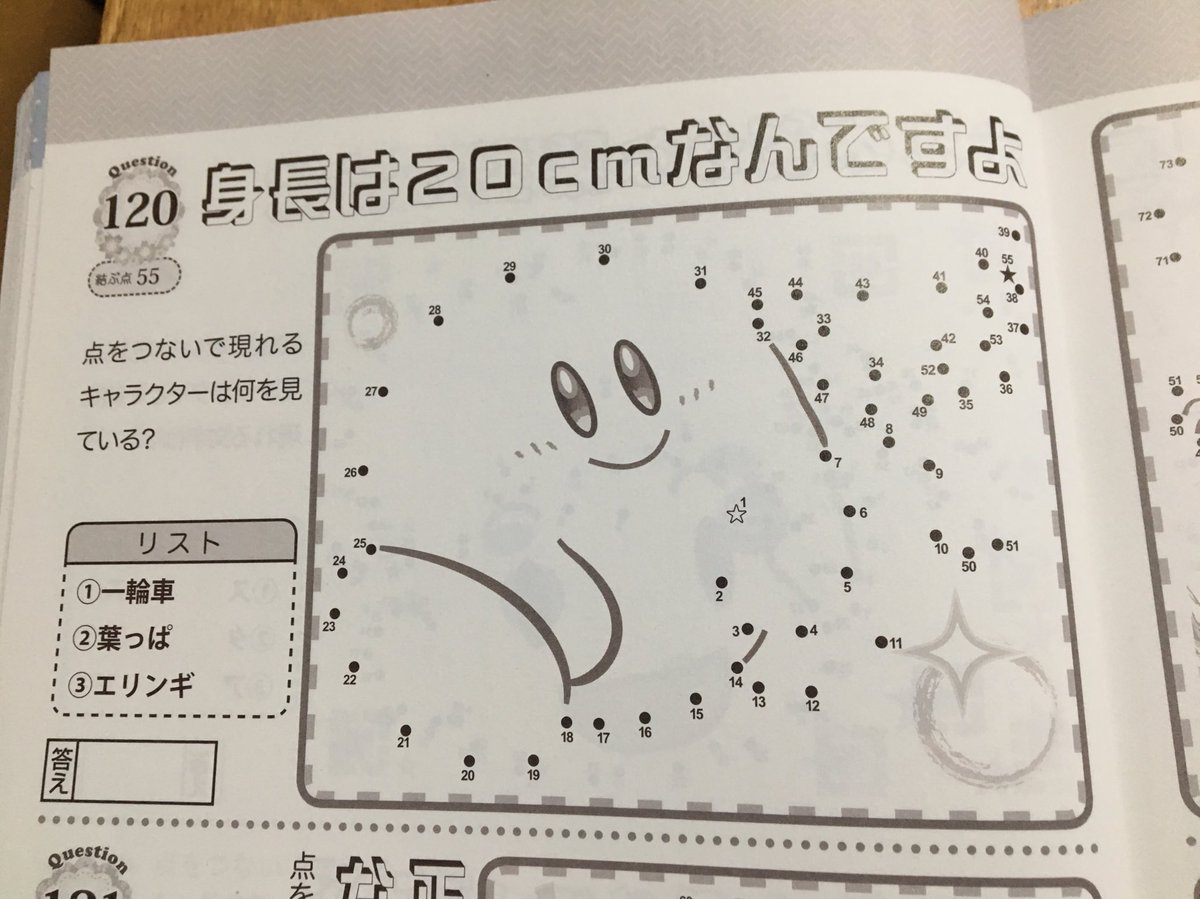 Question
120
身長は20cmなんですよ
結ぶ点 55
点をつないで現れる
キャラクターは何を見
ている?
リスト
①一輪車
②葉っぱ
③エリンギ
答え
39
30
40
55
29
31
41
38
45
44
43
54
28
33
37
32
42
53
46
34
52
36
27
47
49
35
48
8
26
7
9
1
6
25
10
50
51
24
2
5
23
3
4
11
22
14
13
12
15
21
18
17
16
20
19
73
72
71
51
50
Question
121
点を